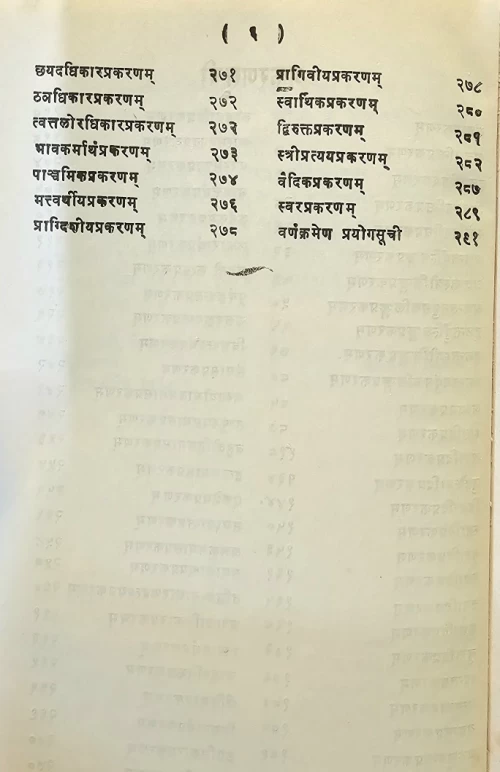 ( ९ )
छयदधिकारप्रकरणम् २७१
ठञधिकारप्रकरणम् २७२
त्वत्तलोरधिकारप्रकरणम् २७२
भावकर्मार्थप्रकरणम् २७३
पाञ्चमिकप्रकरणम् २७४
मत्त्वर्थीयप्रकरणम् २७६
प्राग्दिशीयप्रकरणम् २७८
प्रागिवीयप्रकरणम् २७८
स्वार्थिकप्रकरणम् २८०
द्विरुक्तप्रकरणम् २८१
स्त्रीप्रत्ययप्रकरणम् २८२
वैदिकप्रकरणम् २८७
स्वरप्रकरणम् २८९
वर्णक्रमेण प्रयोगसूची २९१